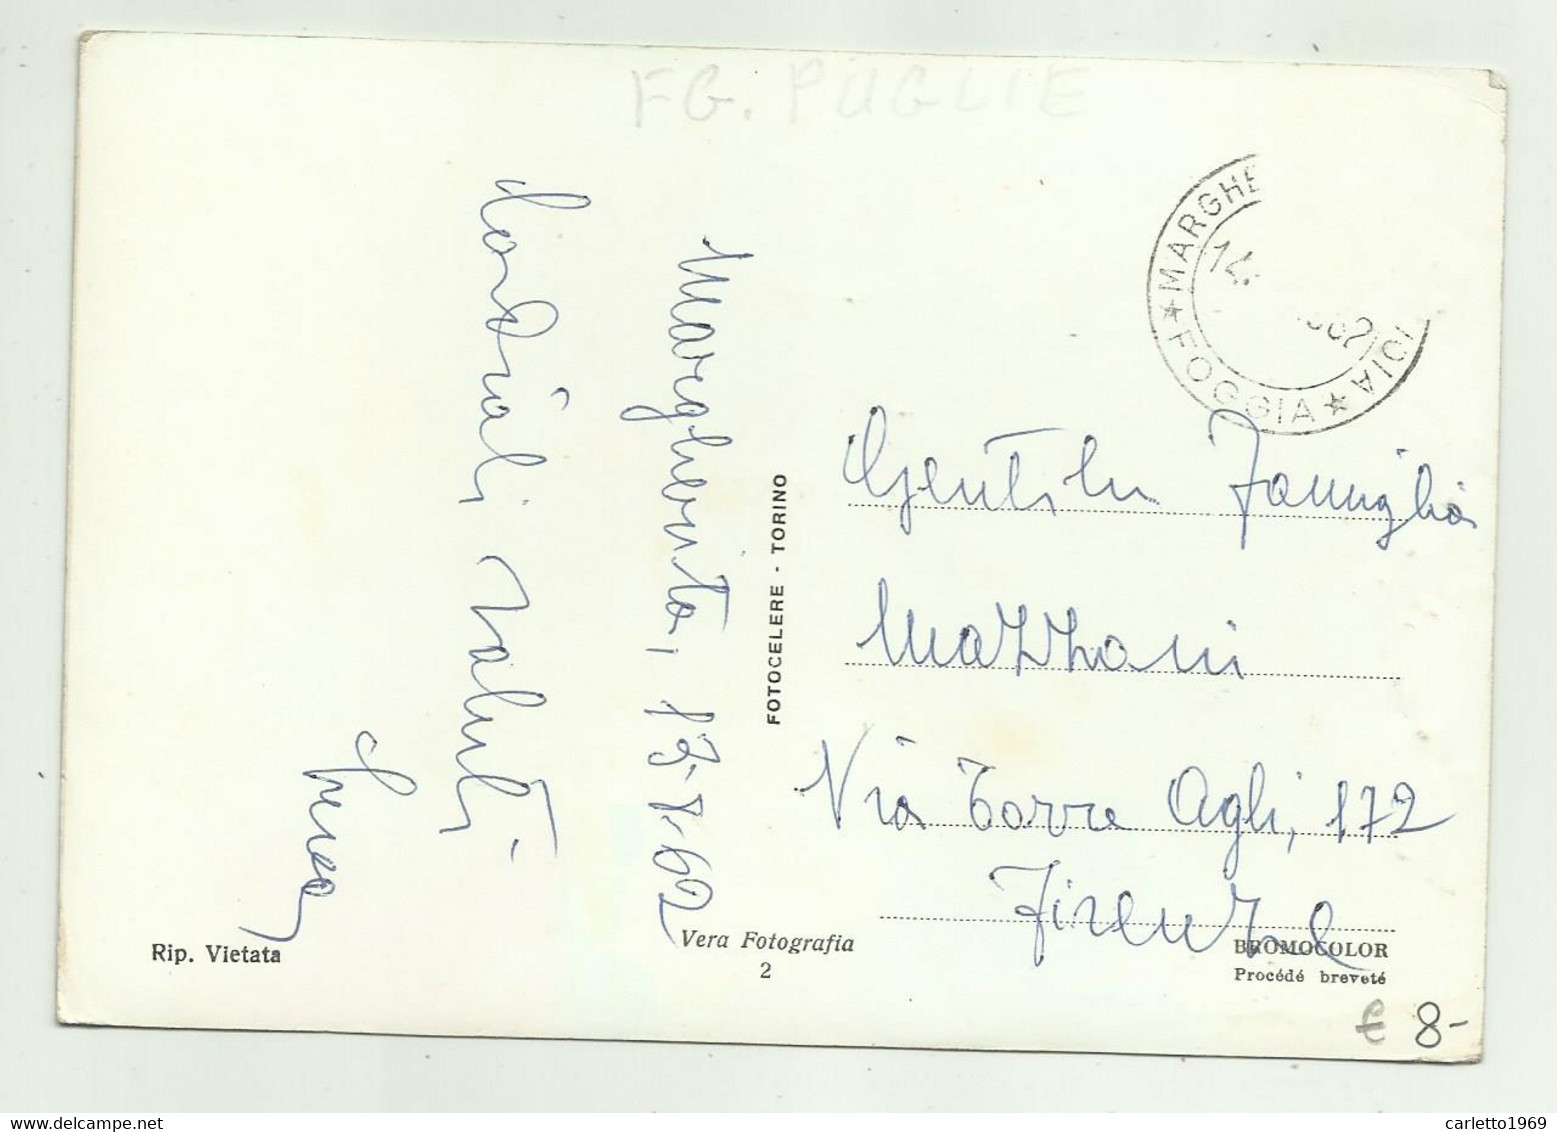 FG. PUGLIE
MARGHE
VIA
ICI
★ FOGGIA ★
14.
Margherita, 13-8-62
Cordiali saluti
FOTOCELERE - TORINO
Gentile Famiglia
Mazzoni
Via Torre Agli, 172
Firenze
Rip. Vietata
Vera Fotografia
2
BROMOCOLOR
Procédé breveté
€ 8-
carletto1969